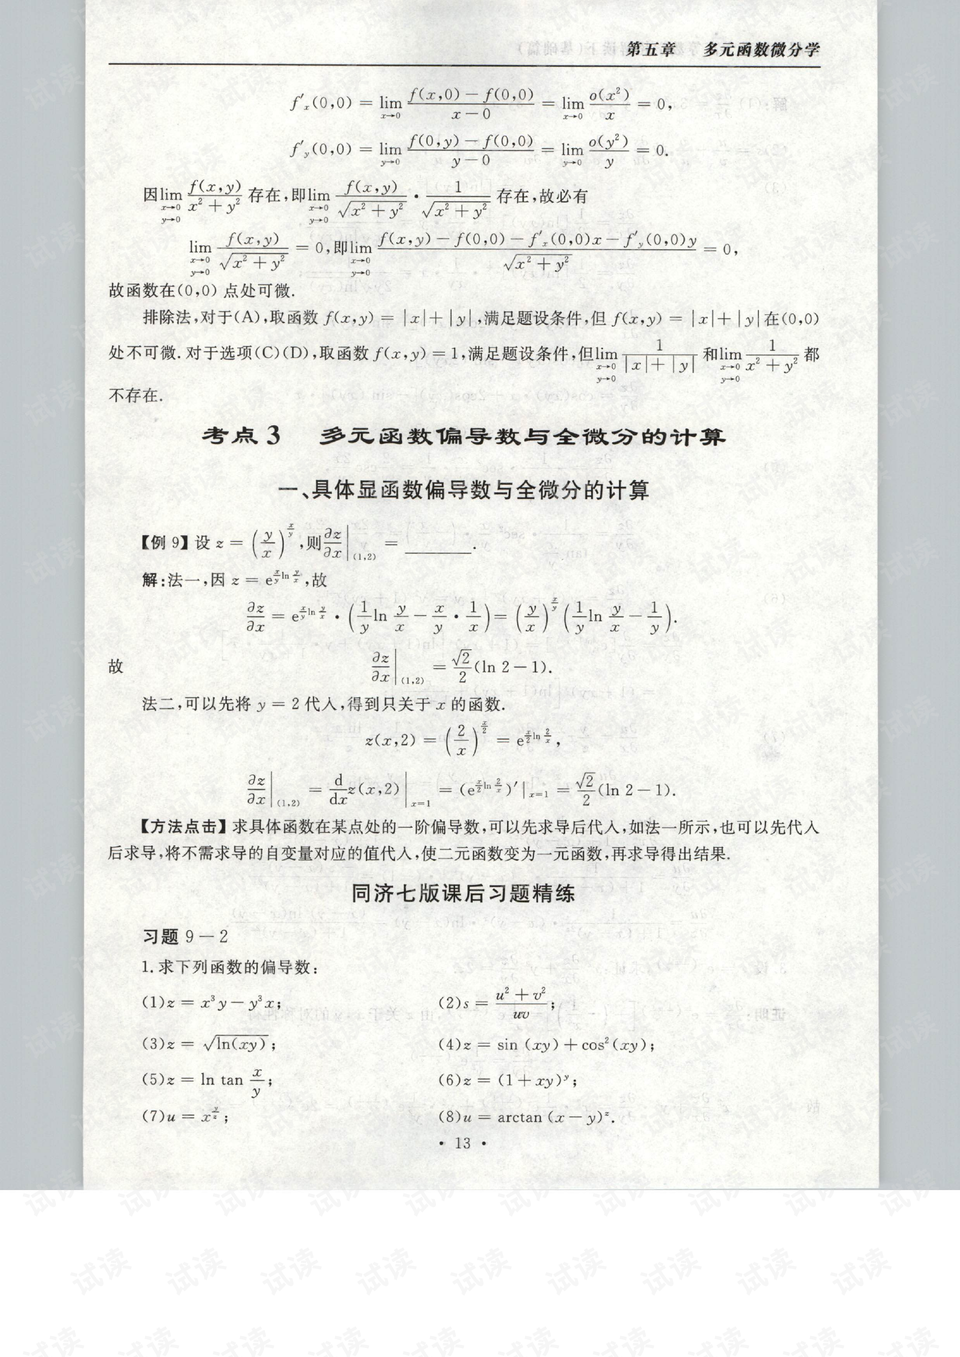 第五章 多元函数微分学
f′ₓ(0,0) = lim_{x→0} \frac{f(x,0) − f(0,0)}{x − 0} = lim_{x→0} \frac{o(x²)}{x} = 0,
f′_y(0,0) = lim_{y→0} \frac{f(0,y) − f(0,0)}{y − 0} = lim_{y→0} \frac{o(y²)}{y} = 0.
因 lim_{x→0, y→0} \frac{f(x,y)}{x² + y²} 存在,即 lim_{x→0, y→0} \frac{f(x,y)}{\sqrt{x² + y²}} · \frac{1}{\sqrt{x² + y²}} 存在,故必有
lim_{x→0, y→0} \frac{f(x,y)}{\sqrt{x² + y²}} = 0,即 lim_{x→0, y→0} \frac{f(x,y) − f(0,0) − f′ₓ(0,0)x − f′_y(0,0)y}{\sqrt{x² + y²}} = 0,
故函数在(0,0) 点处可微.
排除法,对于(A),取函数 f(x,y) = |x| + |y|,满足题设条件,但 f(x,y) = |x| + |y| 在(0,0)
处不可微.对于选项(C)(D),取函数 f(x,y) = 1,满足题设条件,但 lim_{x→0, y→0} \frac{1}{|x| + |y|} 和 lim_{x→0, y→0} \frac{1}{x² + y²} 都
不存在.
考点 3 多元函数偏导数与全微分的计算
一、具体显函数偏导数与全微分的计算
【例 9】设 z = (\frac{y}{x})^{\frac{x}{y}},则 \frac{∂z}{∂x}|_{(1,2)} = ______.
解:法一,因 z = e^{\frac{x}{y}\ln\frac{y}{x}},故
\frac{∂z}{∂x} = e^{\frac{x}{y}\ln\frac{y}{x}} · (\frac{1}{y}\ln\frac{y}{x} − \frac{x}{y} · \frac{1}{x}) = (\frac{y}{x})^{\frac{x}{y}} (\frac{1}{y}\ln\frac{y}{x} − \frac{1}{y}).
故 \frac{∂z}{∂x}|_{(1,2)} = \frac{\sqrt{2}}{2}(ln 2 − 1).
法二,可以先将 y = 2 代人,得到只关于 x 的函数.
z(x,2) = (\frac{2}{x})^{\frac{x}{2}} = e^{\frac{x}{2}\ln\frac{2}{x}},
\frac{∂z}{∂x}|_{(1,2)} = \frac{d}{dx}z(x,2)|_{x=1} = (e^{\frac{x}{2}\ln\frac{2}{x}})′|_{x=1} = \frac{\sqrt{2}}{2}(ln 2 − 1).
【方法点击】求具体函数在某点处的一阶偏导数,可以先求导后代人,如法一所示,也可以先代人
后求导,将不需求导的自变量对应的值代人,使二元函数变为一元函数,再求导得出结果.
同济七版课后习题精练
习题 9 − 2
1.求下列函数的偏导数:
(1)z = x³y − y³x; (2)s = \frac{u² + v²}{uv};
(3)z = \sqrt{\ln(xy)}; (4)z = sin (xy) + cos² (xy);
(5)z = ln tan \frac{x}{y}; (6)z = (1 + xy)^y;
(7)u = x^{\frac{y}{z}}; (8)u = arctan (x − y)^z.
· 13 ·
试读